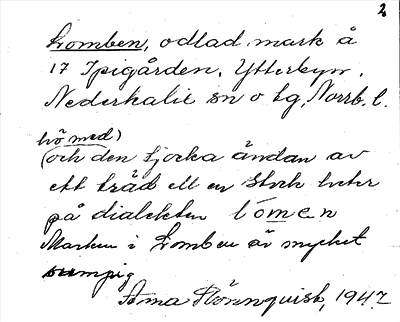 2
Lomben, odlad mark å
17 Ipigården, Ytterbyn,
Nederkalix sn o tg, Norrb. l.
hö med)
(och den tjocka ändan av
ett träd ell en stock heter
på dialekten lomen
Marken i Lomben är mycket
sumpig
Anna Hörnquist, 1947